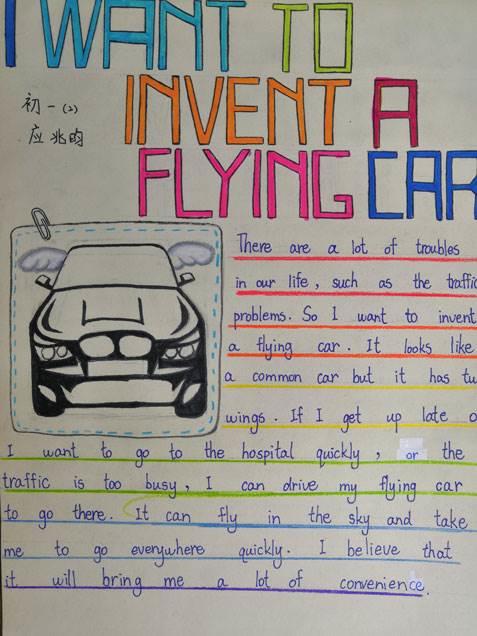 I WANT TO
INVENT A
FLYING CAR
初一(2)
应兆昀
There are a lot of troubles
in our life, such as the traffic
problems. So I want to invent
a flying car. It looks like
a common car but it has
wings. If I get up late
I want to go to the hospital quickly, or the
traffic is too busy, I can drive my flying car
to go there. It can fly in the sky and take
me to go everywhere quickly. I believe that
it will bring me a lot of convenience.